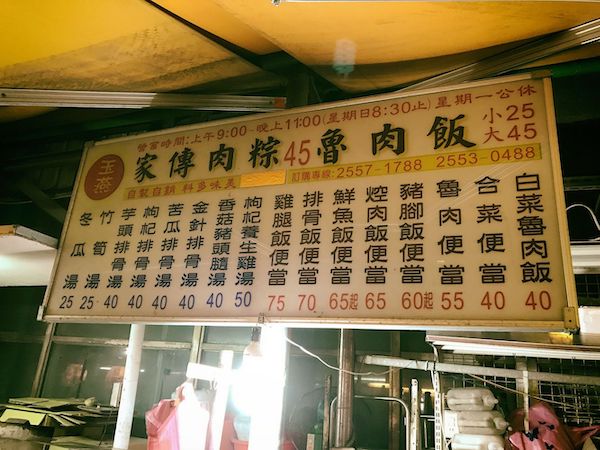 營當時間:上午9:00-晚上11:00(星期日8:30止)星期一公休
玉燕
家傳肉粽45魯肉飯 小25 大45
自製自銷 料多味美
訂購專線:2557-1788 2553-0488
白菜魯肉飯 40
合菜便當 40
魯肉便當 55
豬腳飯便當 60起
焢肉飯便當 65
鮮魚飯便當 65起
排骨飯便當 70
雞腿飯便當 75
枸杞養生雞湯 50
香菇豬頭髓湯 40
金針排骨湯 40
苦瓜排骨湯 40
枸杞排骨湯 40
芋頭排骨湯 40
竹筍湯 25
冬瓜湯 25